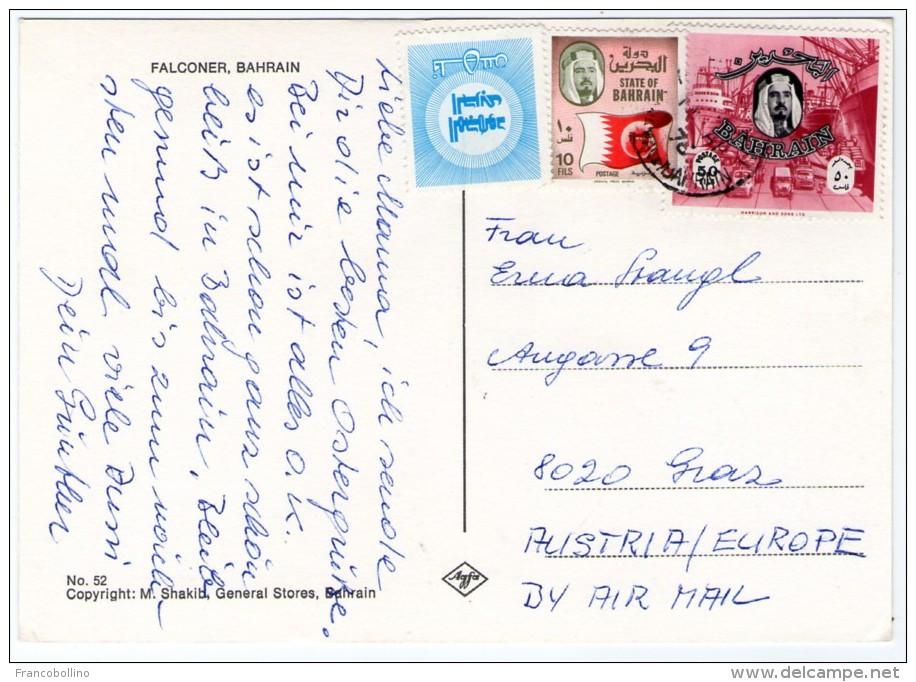 FALCONER, BAHRAIN
Liebe Mama, ich sende
Dir die besten Ostergrüße.
Bei mir ist alles o.k.
es ist schon ganz schön
heiß in Bahrain. Bleib
gesund bis zum näch-
sten mal viele Bussi
Dein Günther
دولة
البحرين
STATE OF
BAHRAIN
١٠
فلس
10
FILS
POSTAGE
البحرين
BAHRAIN
POSTAGE
50
٥٠
HARRISON AND SONS LTD
Frau
Erna Stangl
Augasse 9
8020 Graz
AUSTRIA/EUROPE
BY AIR MAIL
No. 52
Copyright: M. Shakib, General Stores, Bahrain
Agfa
Francobollino
delcampe.net